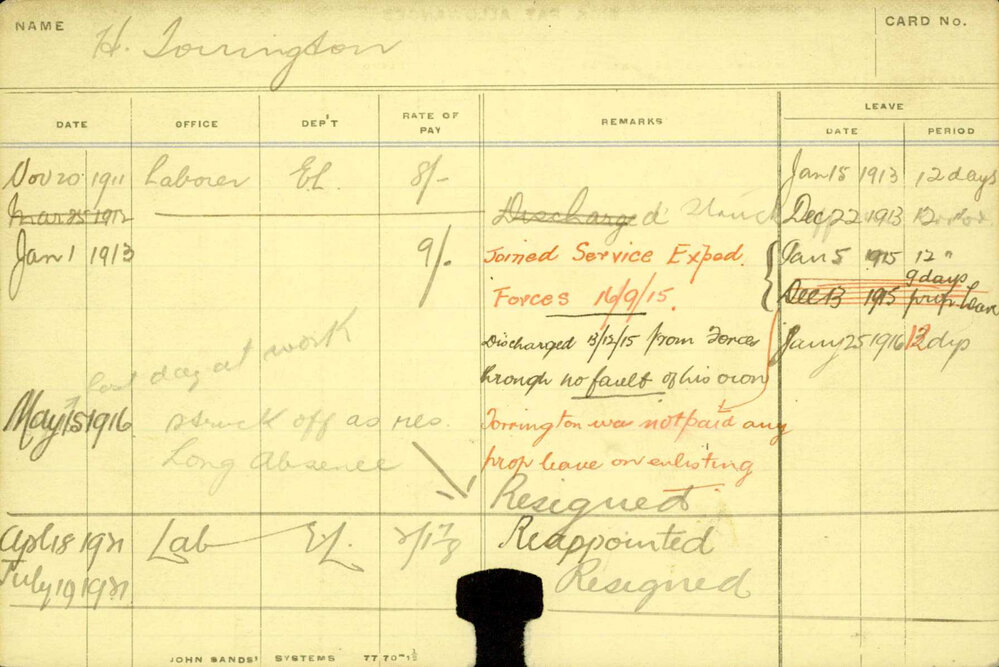 NAME H. Torrington CARD No.
DATE OFFICE DEP'T RATE OF PAY REMARKS LEAVE
DATE PERIOD
Nov 20 1911 Laborer El. 8/- Jan 15 1913 12 days
Mar 25 1912 Discharged Struck off Dec 22 1913 12
Jan 1 1913 9/- Joined Service Exped. Jan 5 1915 12 "
9 days
Forces 16/9/15. Dec 13 1915 prop leave
Discharged 13/12/15 from Forces Jany 25 1916 12 dys
last day at work
through no fault of his own
May 15 1916 struck off as res. Torrington was not paid any
Long Absence prop leave on enlisting
Resigned
Apl 18 1921 Lab El. Reappointed
July 19 1921 Resigned
JOHN SANDS' SYSTEMS